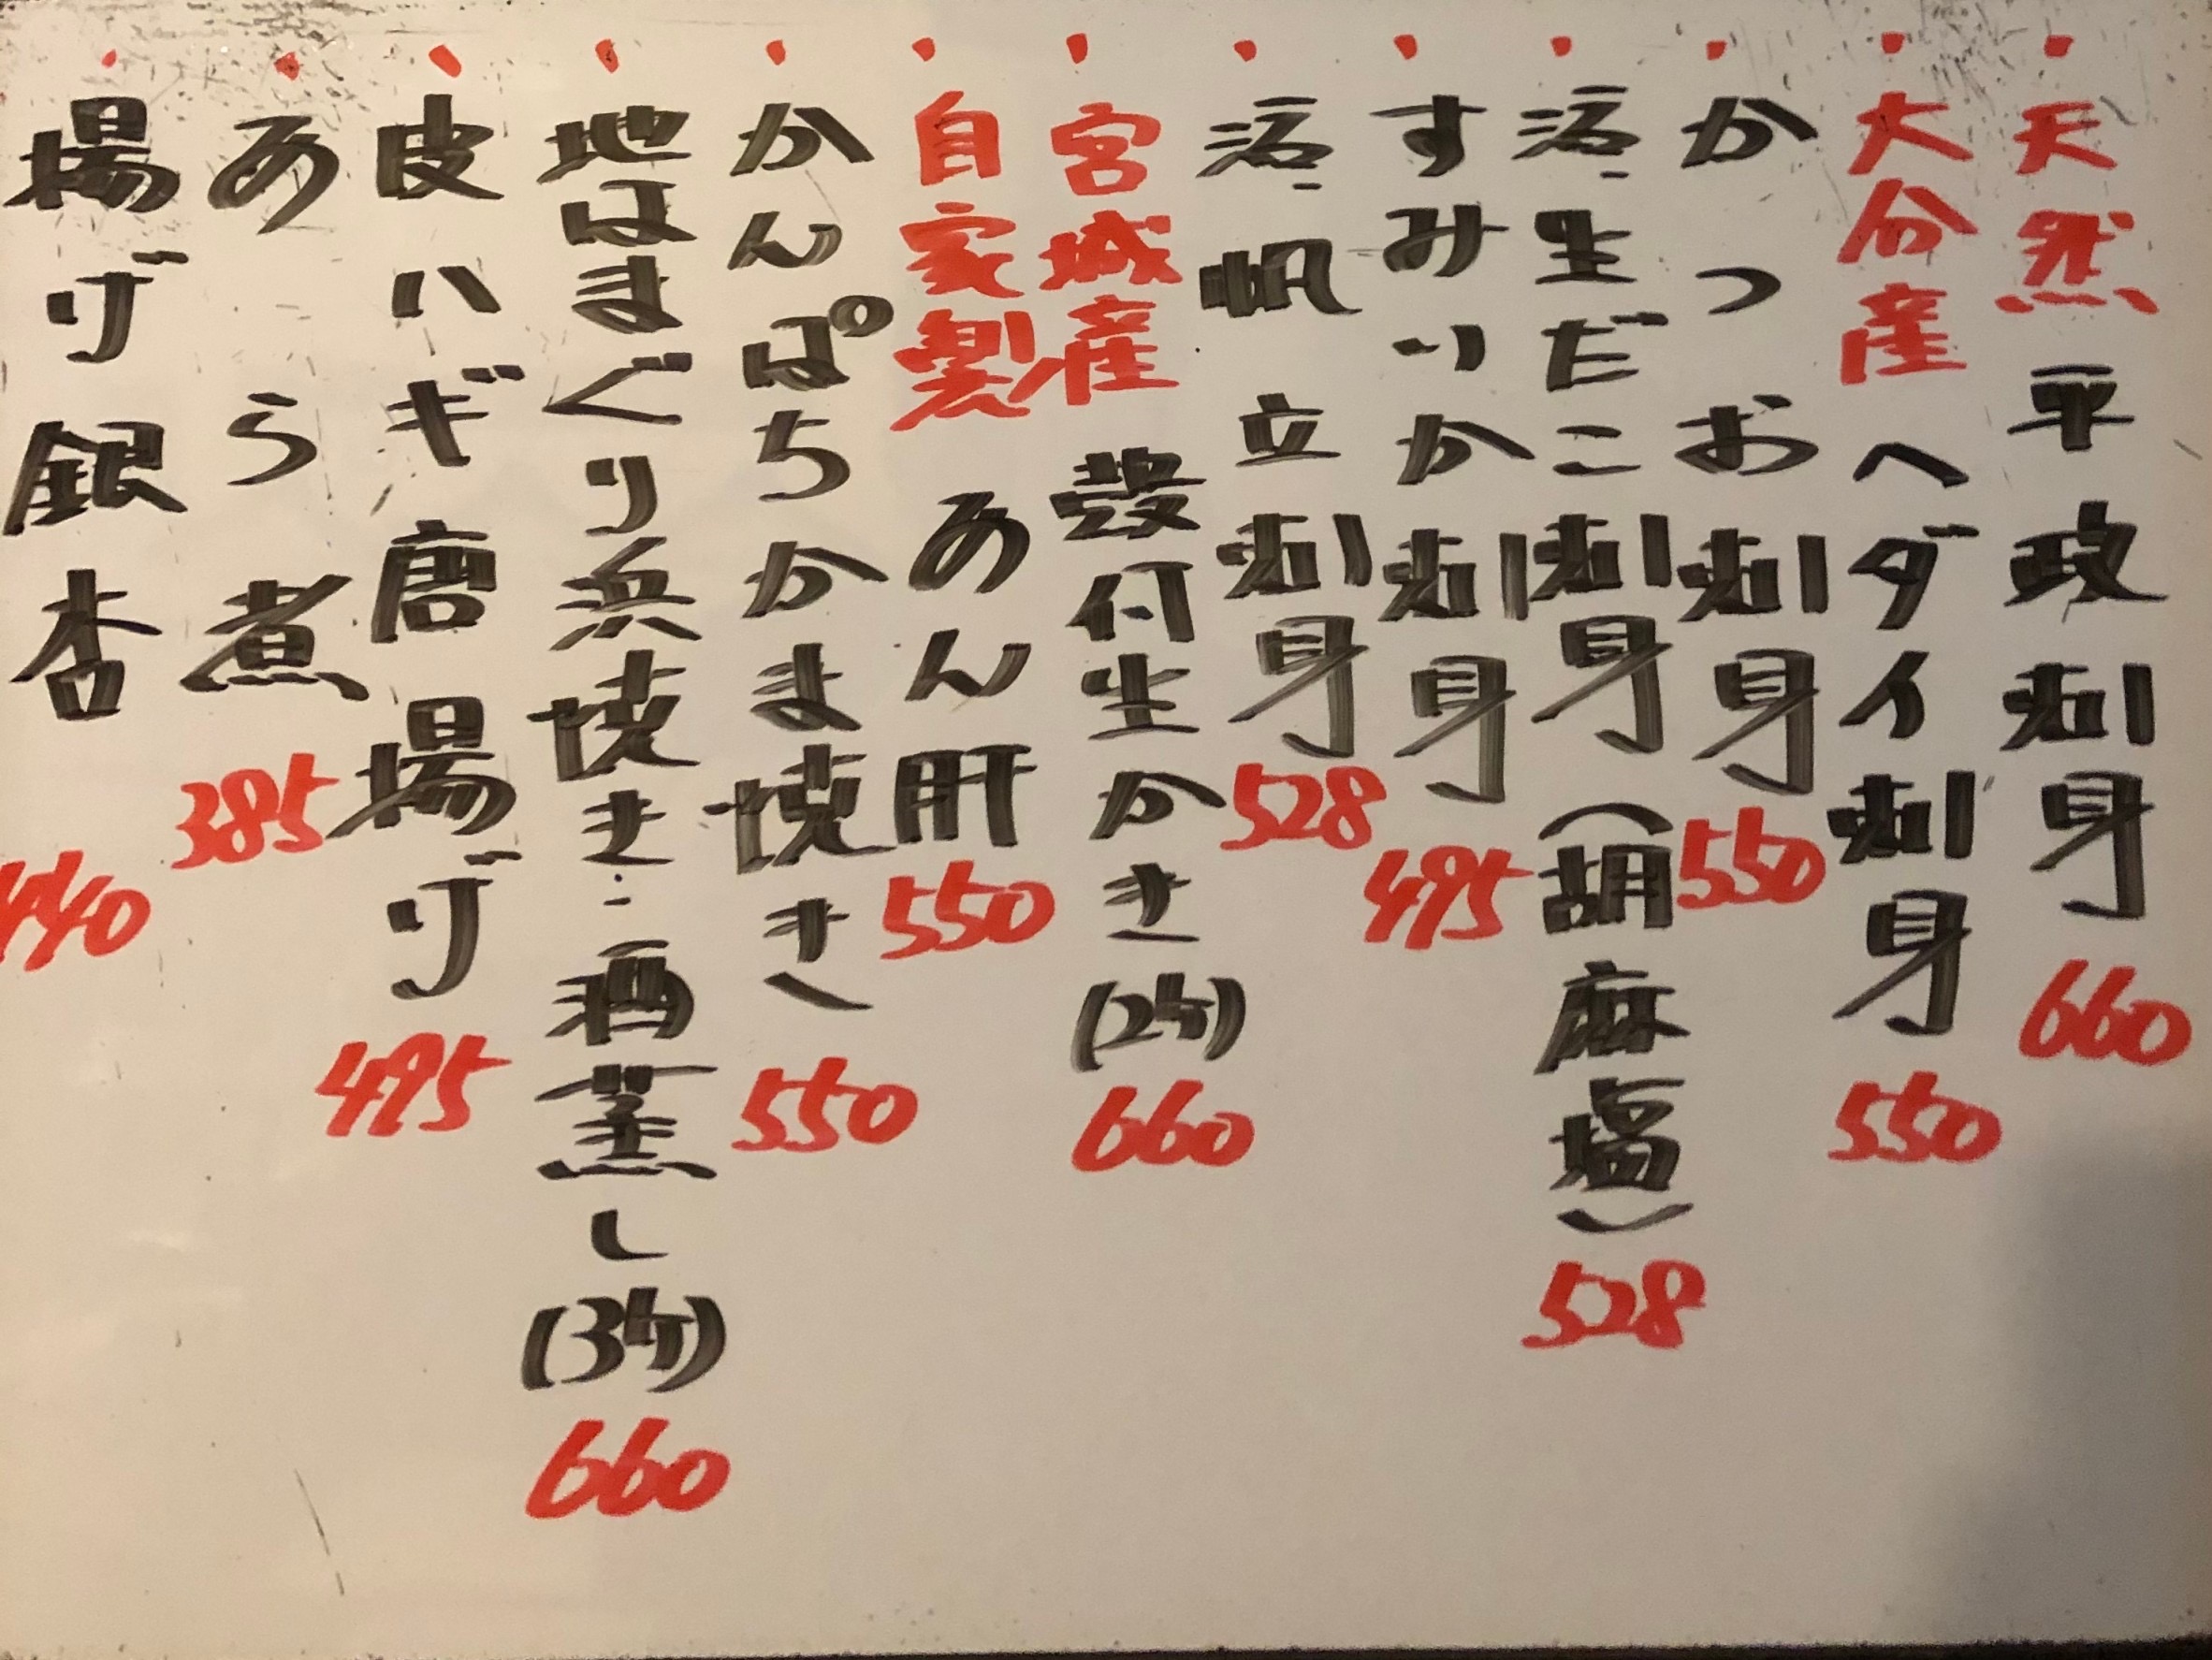 ・天然平政刺身 660
・大分産ヘダイ刺身 550
・かつお刺身 550
・活、生だこ刺身(胡麻塩) 528
・すみいか刺身 495
・活、帆立刺身 528
・宮城産殻付生かき(2ケ) 660
・自家製あん肝 550
・かんぱちかま焼き 550
・地はまぐり浜焼き・酒蒸し(3ケ) 660
・皮ハギ唐揚げ 495
・あら煮 385
・揚げ銀杏 440